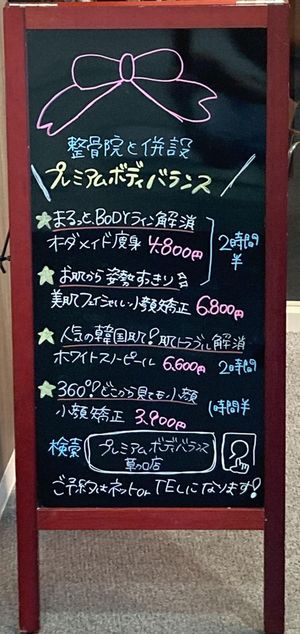 整骨院と併設
プレミアムボディバランス
まるっとBODYライン解消
オーダメイド痩身 4.800円
2時間半
お肌から姿勢すっきり
美肌フェイシャル小顔矯正 6.800円
人気の韓国肌!肌トラブル解消
ホワイトスノーピール 6.600円 2時間
360°!どこから見ても小顔
小顔矯正 3.900円 1時間半
検索 プレミアムボディバランス
草加店
ご予約はネットor TELになります!